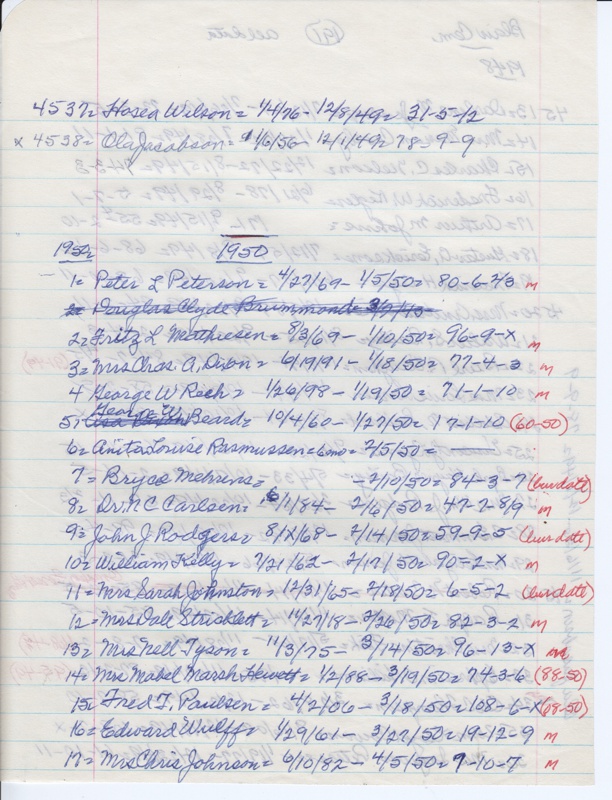 4537= Hosea Wilson= 1/4/76- 12/8/49= 31-5-12
x 4538= Ola Jacobson= 1/6/56- 12/1/49= 78-9-9
1950= 1950
1= Peter L Peterson= 4/27/69- 1/5/50= 80-6-2/3 m
2= Douglas Clyde Brummond= 3/7/13-
2= Fritz L Mathiesen= 8/3/69- 1/10/50= 96-9-x m
3= Mrs Chas. A. Dixon= 6/19/91- 1/18/50= 77-4-3 m
4 George W Rech= 1/26/98- 1/19/50= 71-1-10 m
George W.
5= Beard= 10/4/60- 1/27/50= 17-1-10 (60-50)
6= Anita Louise Rasmussen= 6mo= 2/5/50=
7= Bryce Mehrens= -2/10/50= 84-3-7 (burdate)
8= Dr. N C Carlsen= 6/1/84- 2/6/50= 47-7-8/9 m
9= John J Rodgers= 8/x/68- 2/14/50= 59-9-5 (burdate)
10= William Kelly= 7/21/62- 2/17/50= 90-2-x m
11= Mrs Sarah Johnston= 12/31/65- 2/18/50= 6-5-2 (burdate)
12= Mrs Dale Stricklett= 11/27/18- 2/26/50= 82-3-2 m
13= Mrs Nell Tyson= 11/3/75- 3/14/50= 96-13-x m
14= Mrs Mabel Marsh Hewett= 1/2/88- 3/19/50= 74-3-6 (88-50)
15= Fred T. Paulsen= 4/2/06- 3/18/50= 108-6-x (08-50)
16= Edward Wulff= 1/29/61- 3/27/50= 19-12-9 m
17= Mrs Chris Johnson= 6/10/82- 4/5/50= 9-10-7 m